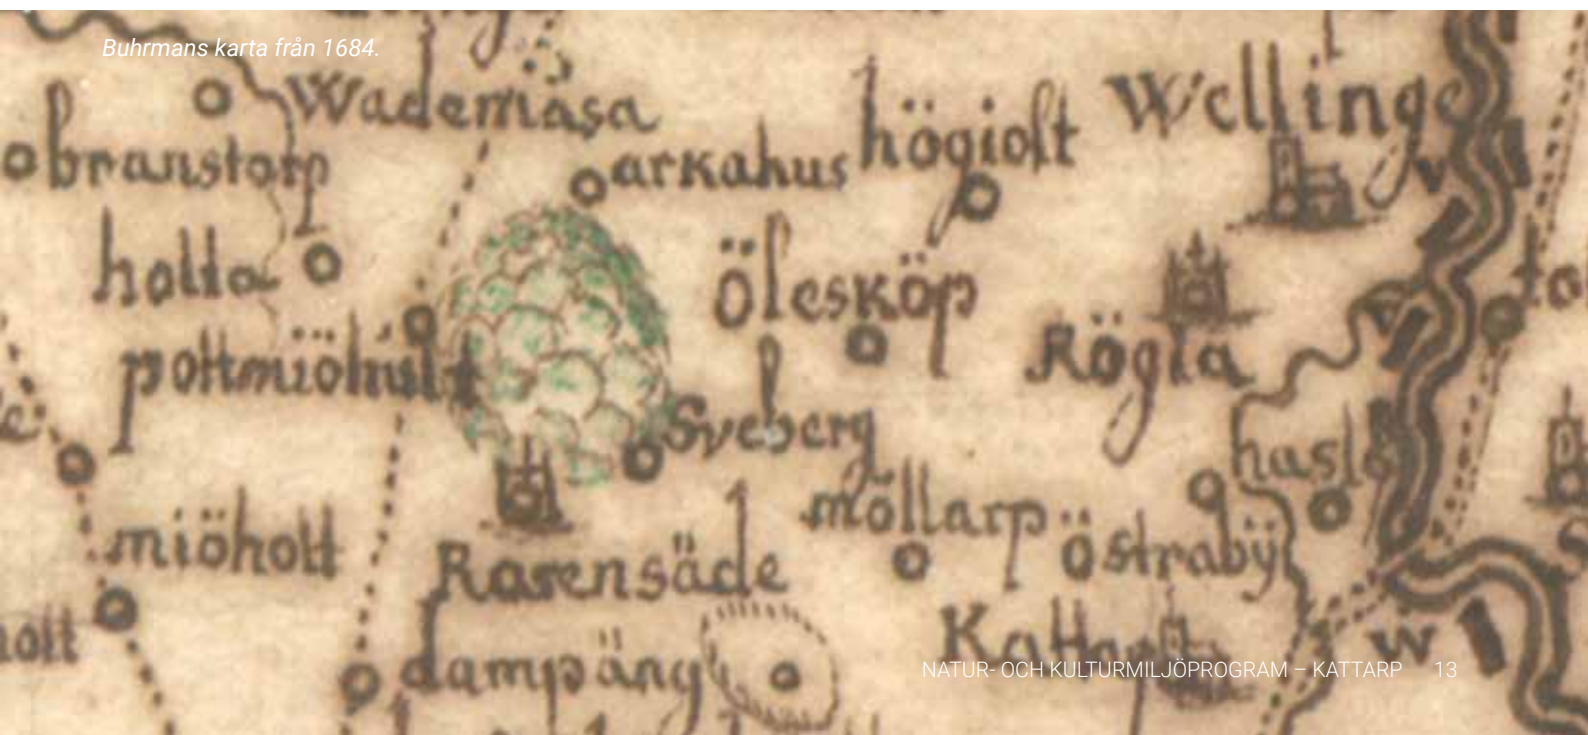 Buhrmans karta från 1684.
Wademåsa
branstorp
arkahus
högiolt
Wellinge
holta
ölesköp
Rögla
pottmiöhult
Sveberg
hasl
möllarp
östrabÿ
miöholt
Rosensäde
dampäng
W
NATUR- OCH KULTURMILJÖPROGRAM – KATTARP 13